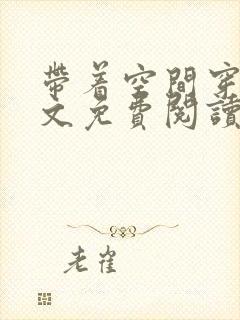 帶着空間穿
文免費閱讀
老崔